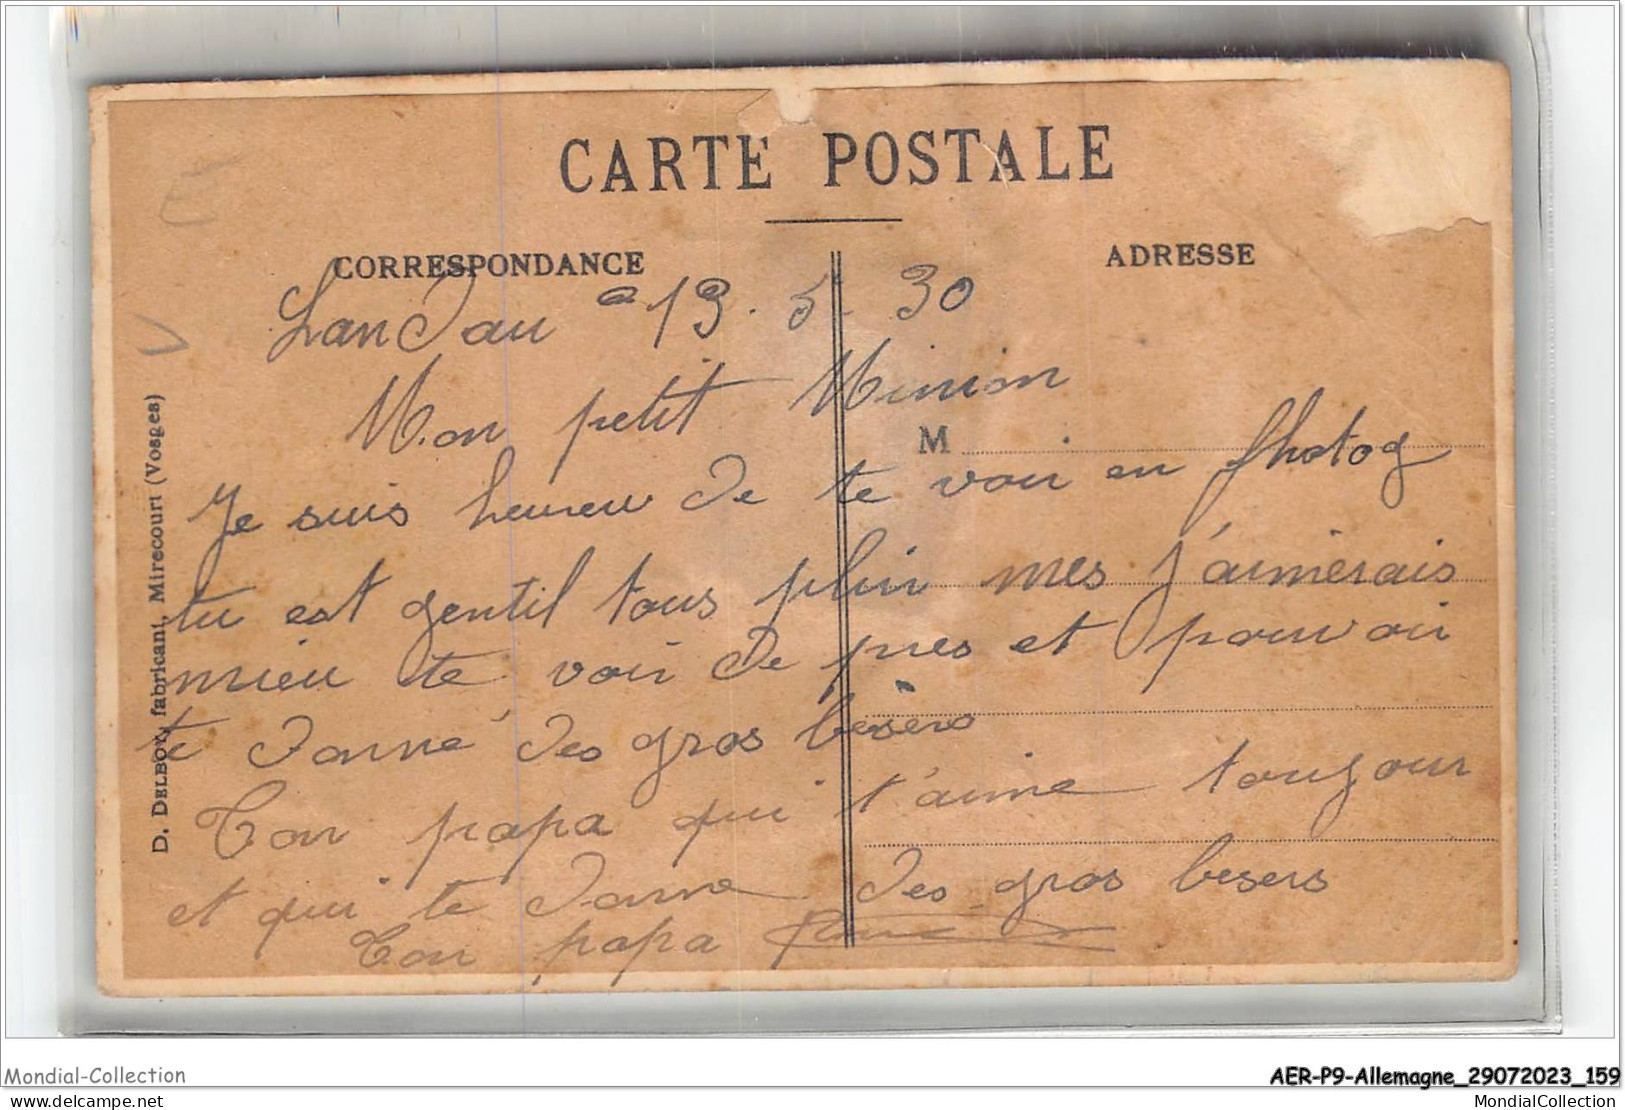 CARTE POSTALE
CORRESPONDANCE
ADRESSE
Landau 19.5.30
Mon petit Minion
M
Je suis heureu de te voir en photog
tu est gentil tous plin mes j'aimerais
mieu te voir de pres et pouvoir
te donné des gros besers
Ton papa qui t'aime toujour
et qui te donne des gros besers
Ton papa
D. DELBOY, fabricant, Mirecourt (Vosges)
Mondial-Collection
AER-P9-Allemagne_29072023_159
delcampe.net
MondialCollection